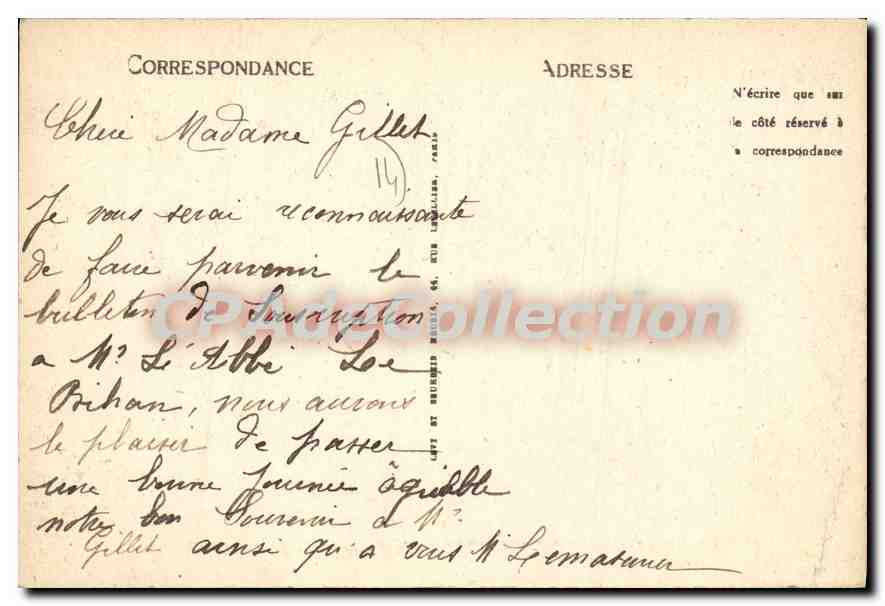 CORRESPONDANCE
ADRESSE
N'écrire que sur
le côté réservé à
la correspondance
Chere Madame Gillet
14
Je vous serai reconnaissante
de faire parvenir le
bulletin de Souscription
a Mr L'Abbé Le
Bihan, nous aurons
le plaisir de passer
une bonne journée agréable
notre bon Souvenir a Mr
Gillet ainsi qu'a vous
LEVY ET NEURDEIN REUNIS, 44, RUE LETELLIER, PARIS
CPAdeCollection